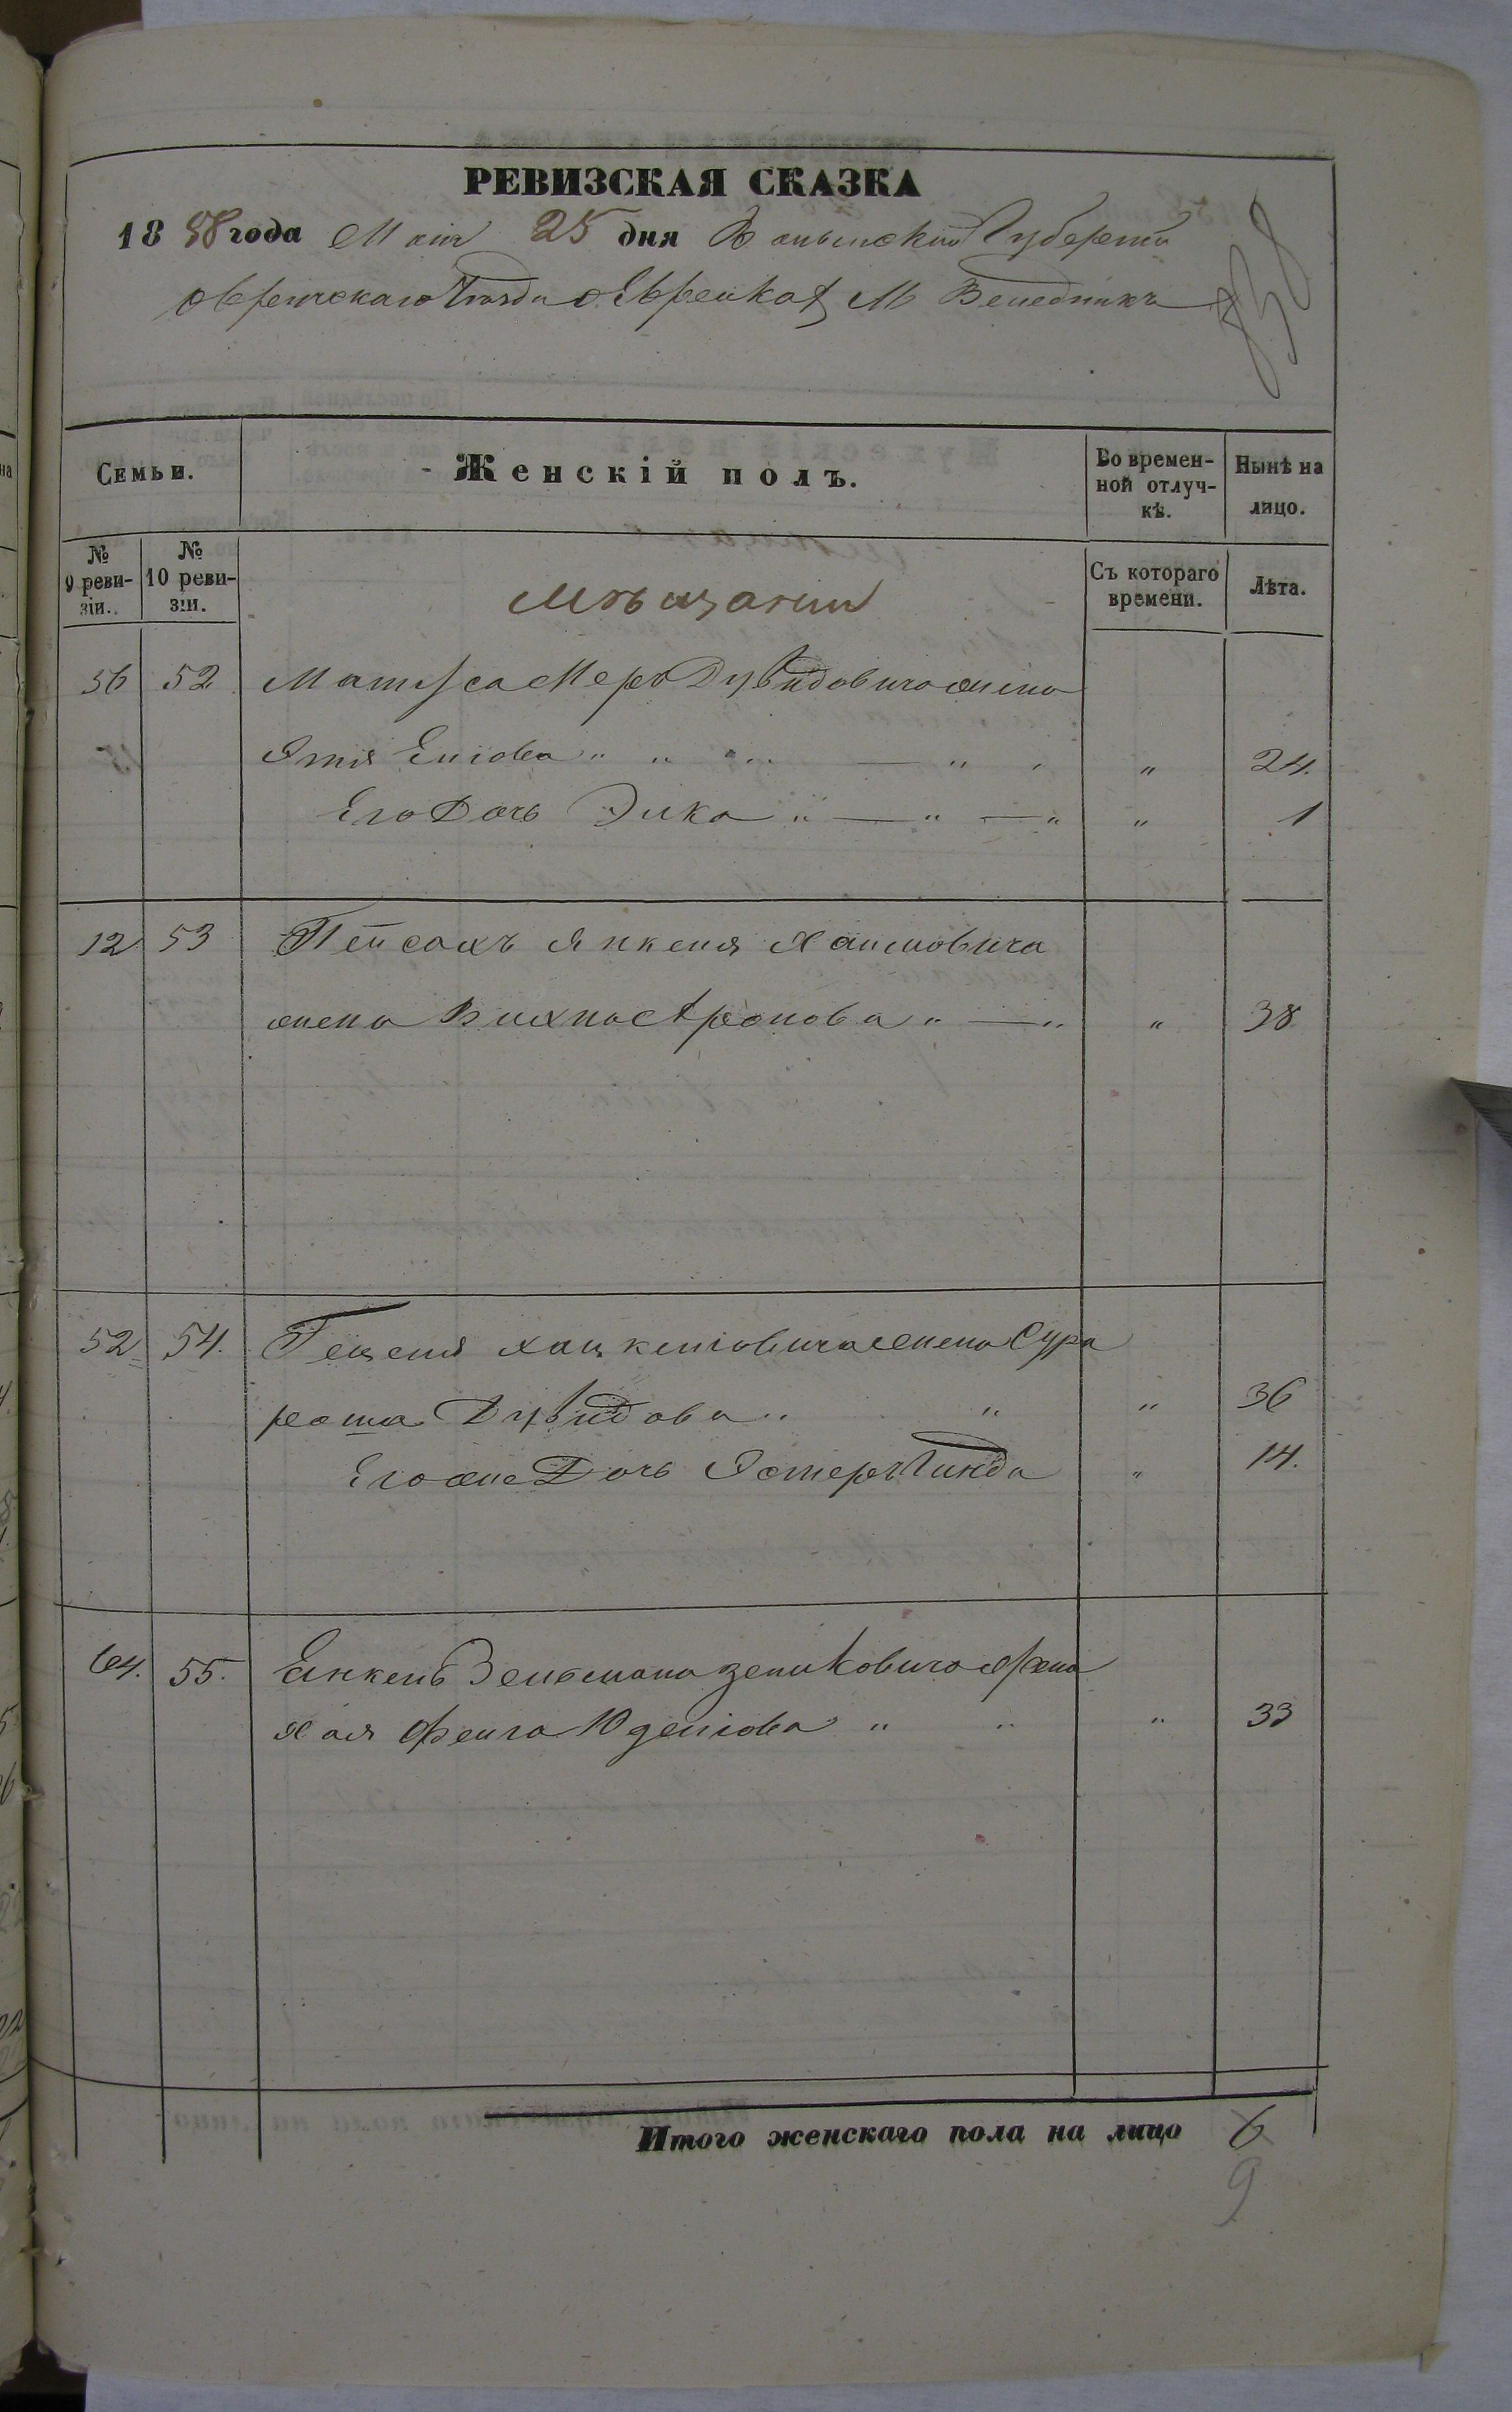 РЕВИЗСКАЯ СКАЗКА
18 58 года Маія 25 дня Волынской Губерніи
Овручскаго Уѣзда М Веледникъ
Семьи.
Женскій полъ.
Во времен-
ной отлуч-
кѣ.
Нынѣ на
лицо.
№
9 реви-
зіи.
№
10 реви-
зіи.
Съ котораго
времени.
Лѣта.
Мѣщане
56 52 Меръ Дувидовича жена
" " " — " " " 24.
Его Дочь Элка " — " — " " 1
12 53 Пейсахъ Янкеля Хаимовича
жена Вихна " — " " 38
52 54. Гецеля Хацкелювича жена Сура
Дувидова " " " 36
Его же Дочь Эстеръ Линда " 14.
64. 55. Янкель Зельмана жена
Хая Фейга Юделіова " " " 33
Итого женскаго пола на лицо 6
9